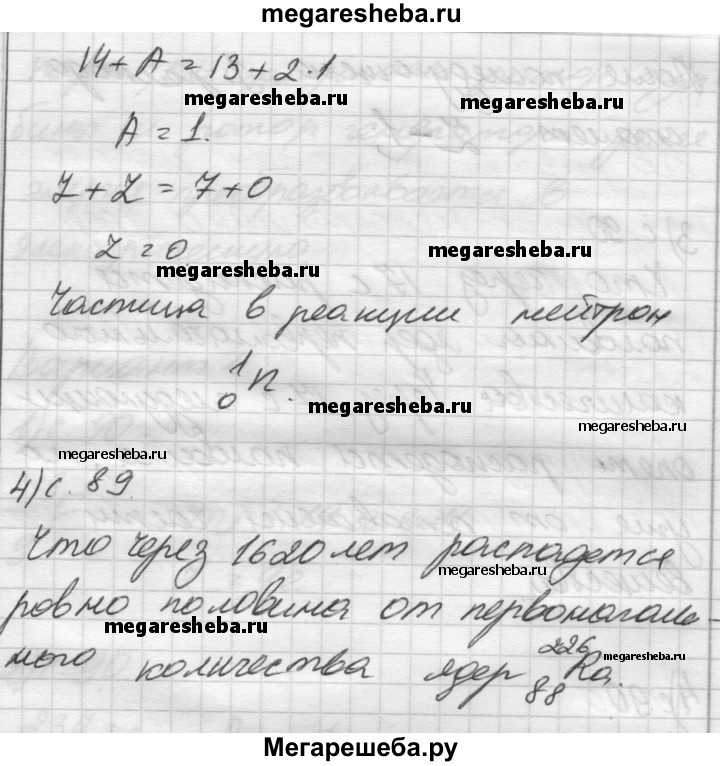 megaresheba.ru
14 + A = 13 + 2·1
megaresheba.ru megaresheba.ru
A = 1.
7 + Z = 7 + 0
Z = 0
megaresheba.ru
megaresheba.ru
Частица в реакции нейтрон
¹₀n.
megaresheba.ru
megaresheba.ru
megaresheba.ru
4) с. 89.
Что через 1620 лет распадется
megaresheba.ru
ровно половина от первоначаль-
megaresheba.ru
ного количества ядер ²²⁶₈₈Ra.
megaresheba.ru
Мегарешеба.ру